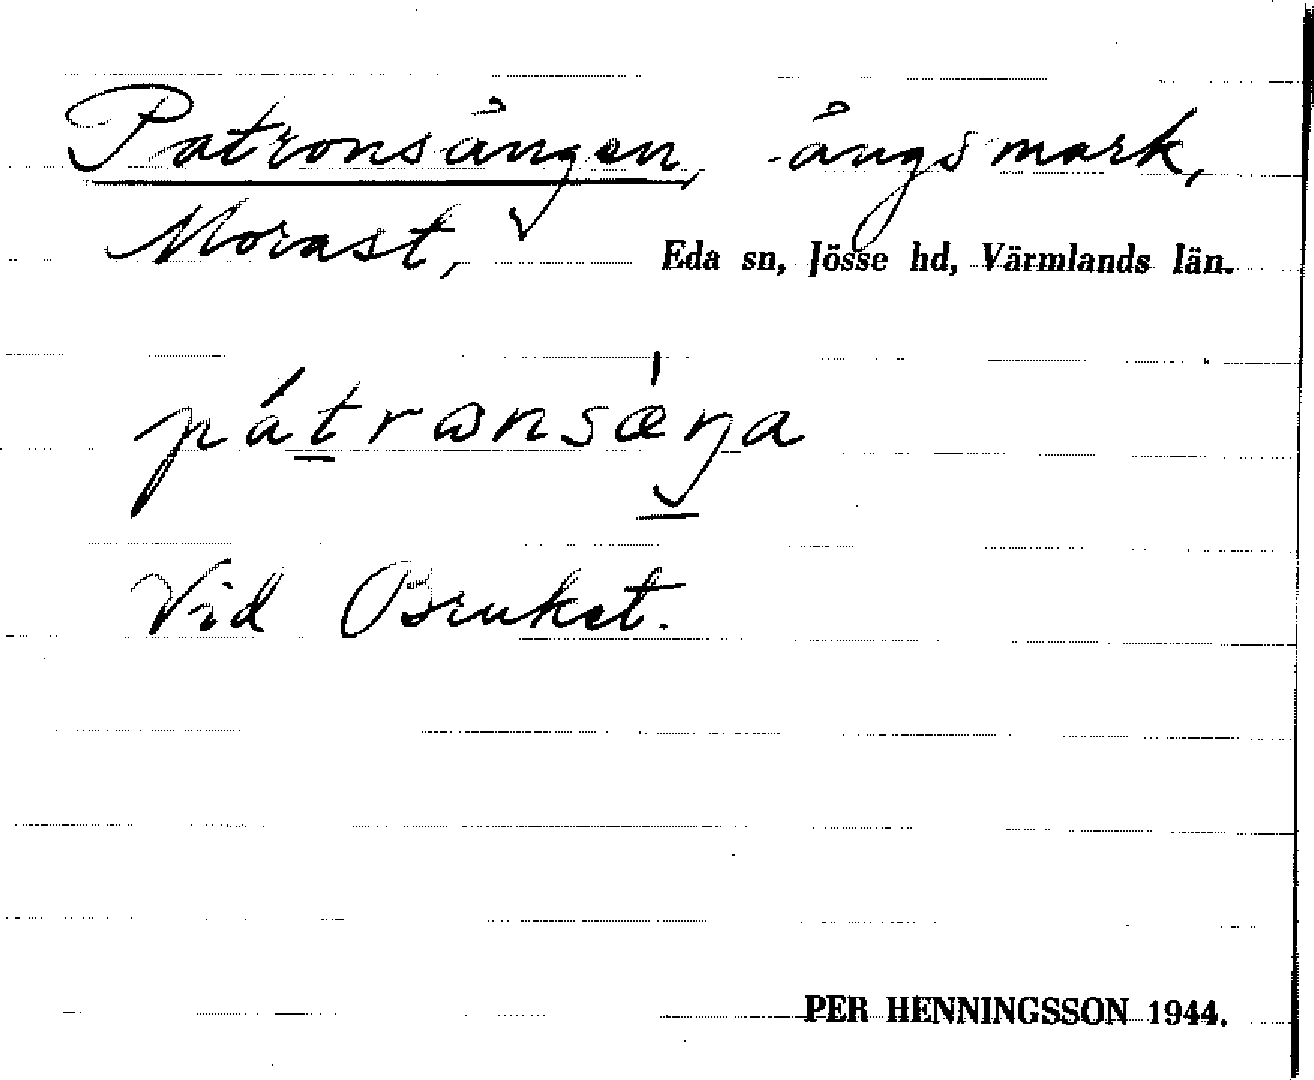 Patronsängen, ängsmark,
Morast, Eda sn, Jösse hd, Värmlands län.
pátrωnsæ̀ŋa
Vid Bruket.
PER HENNINGSSON 1944.